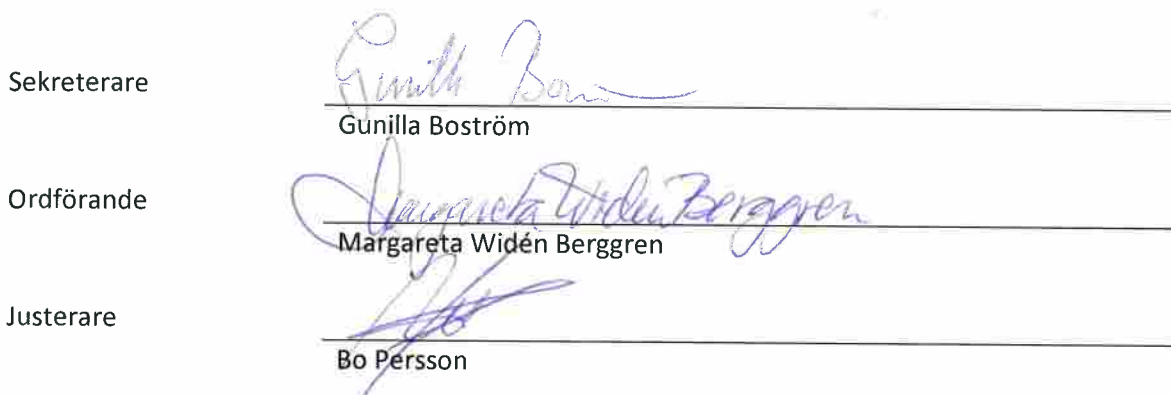 Sekreterare
Gunilla Boström
Ordförande
Margareta Widén Berggren
Margareta Widén Berggren
Justerare
Bo Persson